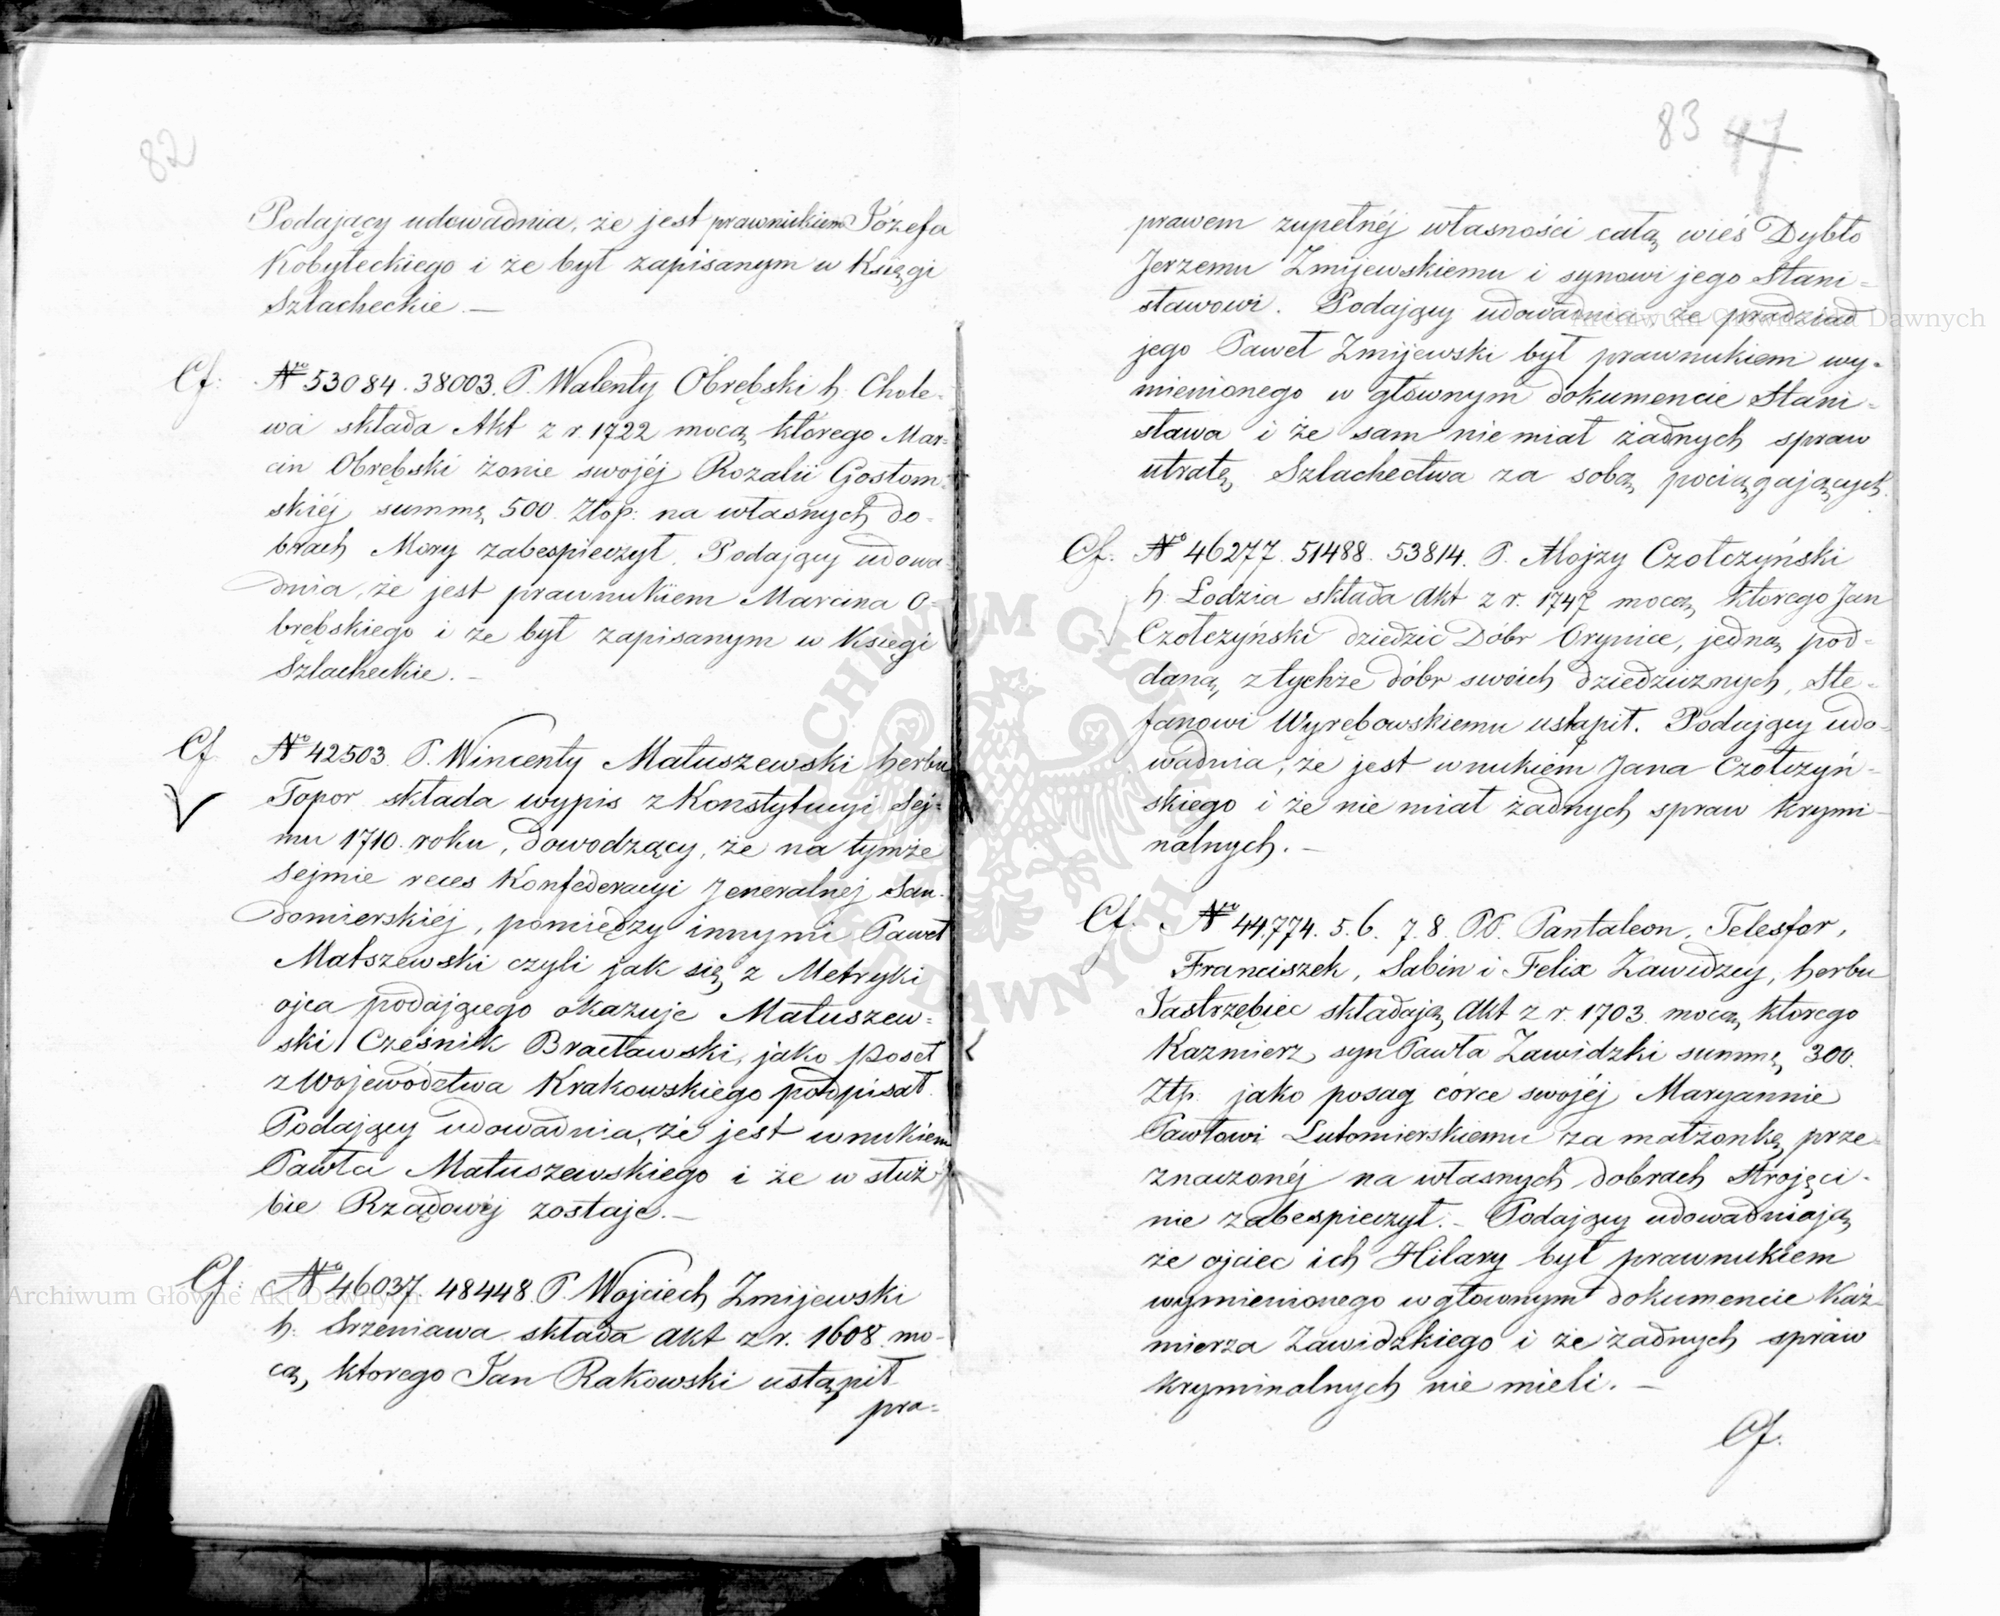 82
Podający udowadnia, że jest prawnukiem Józefa
Kobyłeckiego i że był zapisanym w Księgi
Szlacheckie. —
Cf: No 53084. 38003. P. Walenty Obrębski h. Chole-
wa składa Akt z r. 1722 mocą którego Mar-
cin Obrębski żonie swojéj Rozalii Gostom-
skiéj summę 500 Złop: na własnych do-
brach Mory zabespieczył. Podający udowa-
dnia, że jest prawnukiem Marcina O-
brębskiego i że był zapisanym w Księgi
Szlacheckie. —
Cf. No 42503 P. Wincenty Matuszewski herbu
Topor składa wypis z Konstytucyi Sej-
mu 1710. roku, dowodzący, że na tymże
Sejmie reces Konfederacyi Jeneralnéj San-
domierskiéj, pomiędzy innymi Paweł
Matszewski czyli jak się z Metryki
ojca podającego okazuje Matuszew-
ski Cześnik Bracławski, jako poseł
z Województwa Krakowskiego podpisał.
Podający udowadnia, że jest wnukiem
Pawła Matuszewskiego i że w służ-
bie Rządowéj zostaje. —
Cf: No 46037. 48448. P. Wojciech Zmijewski
h. Srzeniawa składa akt z r. 1608. mo-
cą, ktorego Jan Rakowski ustąpił
pra-
83 47
prawem zupełnéj własności całą wieś Dybło
Jerzemu Zmijewskiemu i synowi jego Stani-
sławowi. Podający udowadnia że pradziad
jego Paweł Zmijewski był prawnukiem wy-
mienionego w głównym dokumencie Stani-
sława i że sam nie miał żadnych spraw
utratę Szlachectwa za sobą pociągających.
Cf. No 46277. 51488. 53814. P. Alojzy Czołczyński
h. Łodzia składa Akt z r. 1747 mocą ktorego Jan
Czołczyński dziedzic Dóbr Orynice, jedną pod-
daną, z tychże dóbr swoich dziedzicznych, Ste-
fanowi Wyrębowskiemu ustąpił. Podający udo-
wadnia, że jest wnukiem Jana Czołczyń-
skiego i że nie miał żadnych spraw krymi-
nalnych. —
Cf. No 44,774. 5. 6. 7. 8. PP. Pantaleon, Telesfor,
Franciszek, Sabin i Felix Zawidzcy, herbu
Jastrzębiec składają Akt z r. 1703. mocą ktorego
Kazmierz syn Pawła Zawidzki summę 300.
Złp. jako posag córce swojéj Maryannie
Pawłowi Lutomierskiemu za małżonkę prze-
znaczonéj na własnych dobrach Strojęci-
nie zabespieczył. — Podający udowadniają
że ojciec ich Hilary był prawnukiem
wymienionego w głownym dokumencie Kaź-
mierza Zawidzkiego i że żadnych spraw
kryminalnych nie mieli. —
Cf.
Archiwum Główne Akt Dawnych
Archiwum Główne Akt Dawnych
ARCHIWUM GŁÓWNE AKT DAWNYCH